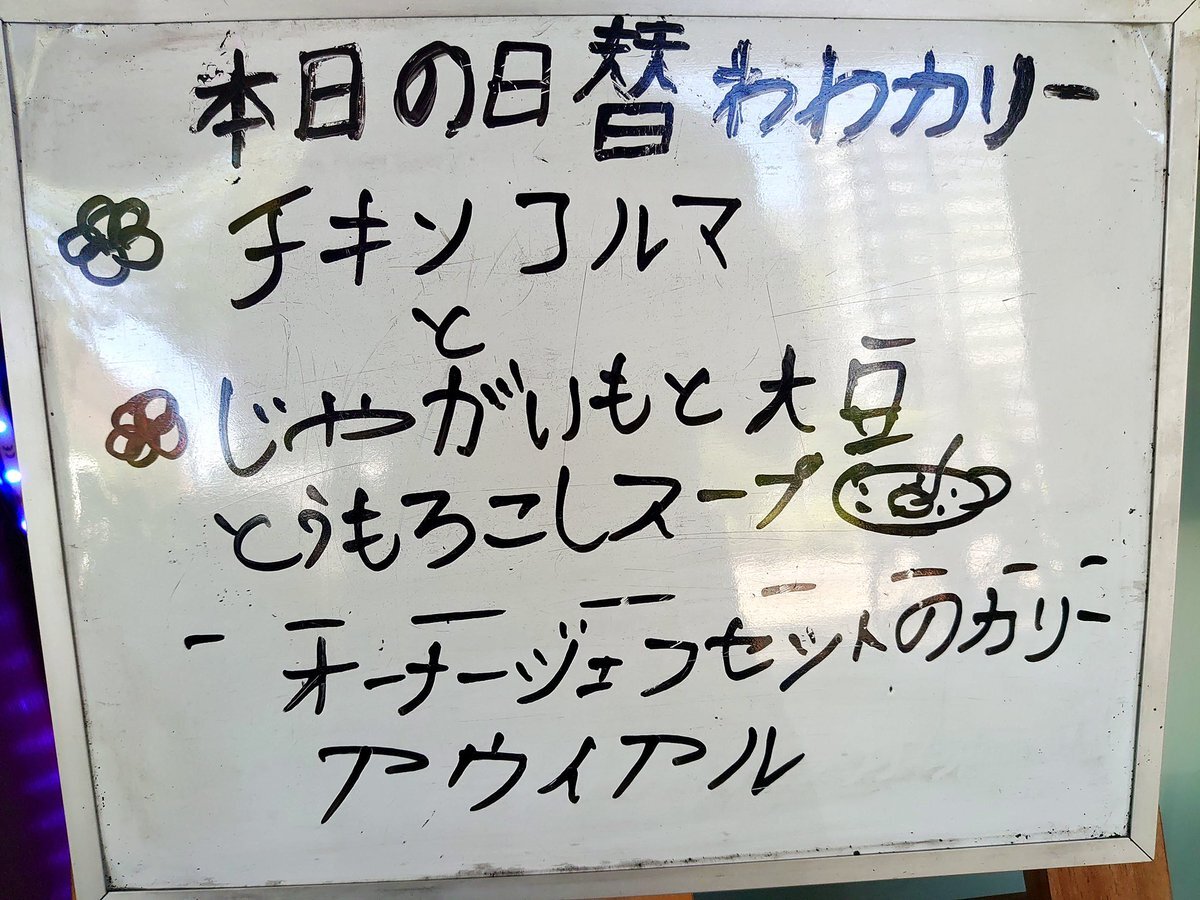 本日の日替わわカリー
チキンコルマ
と
じゃがいもと大豆
とうもろこしスープ
オーナーシェフセットのカリー
アウィアル